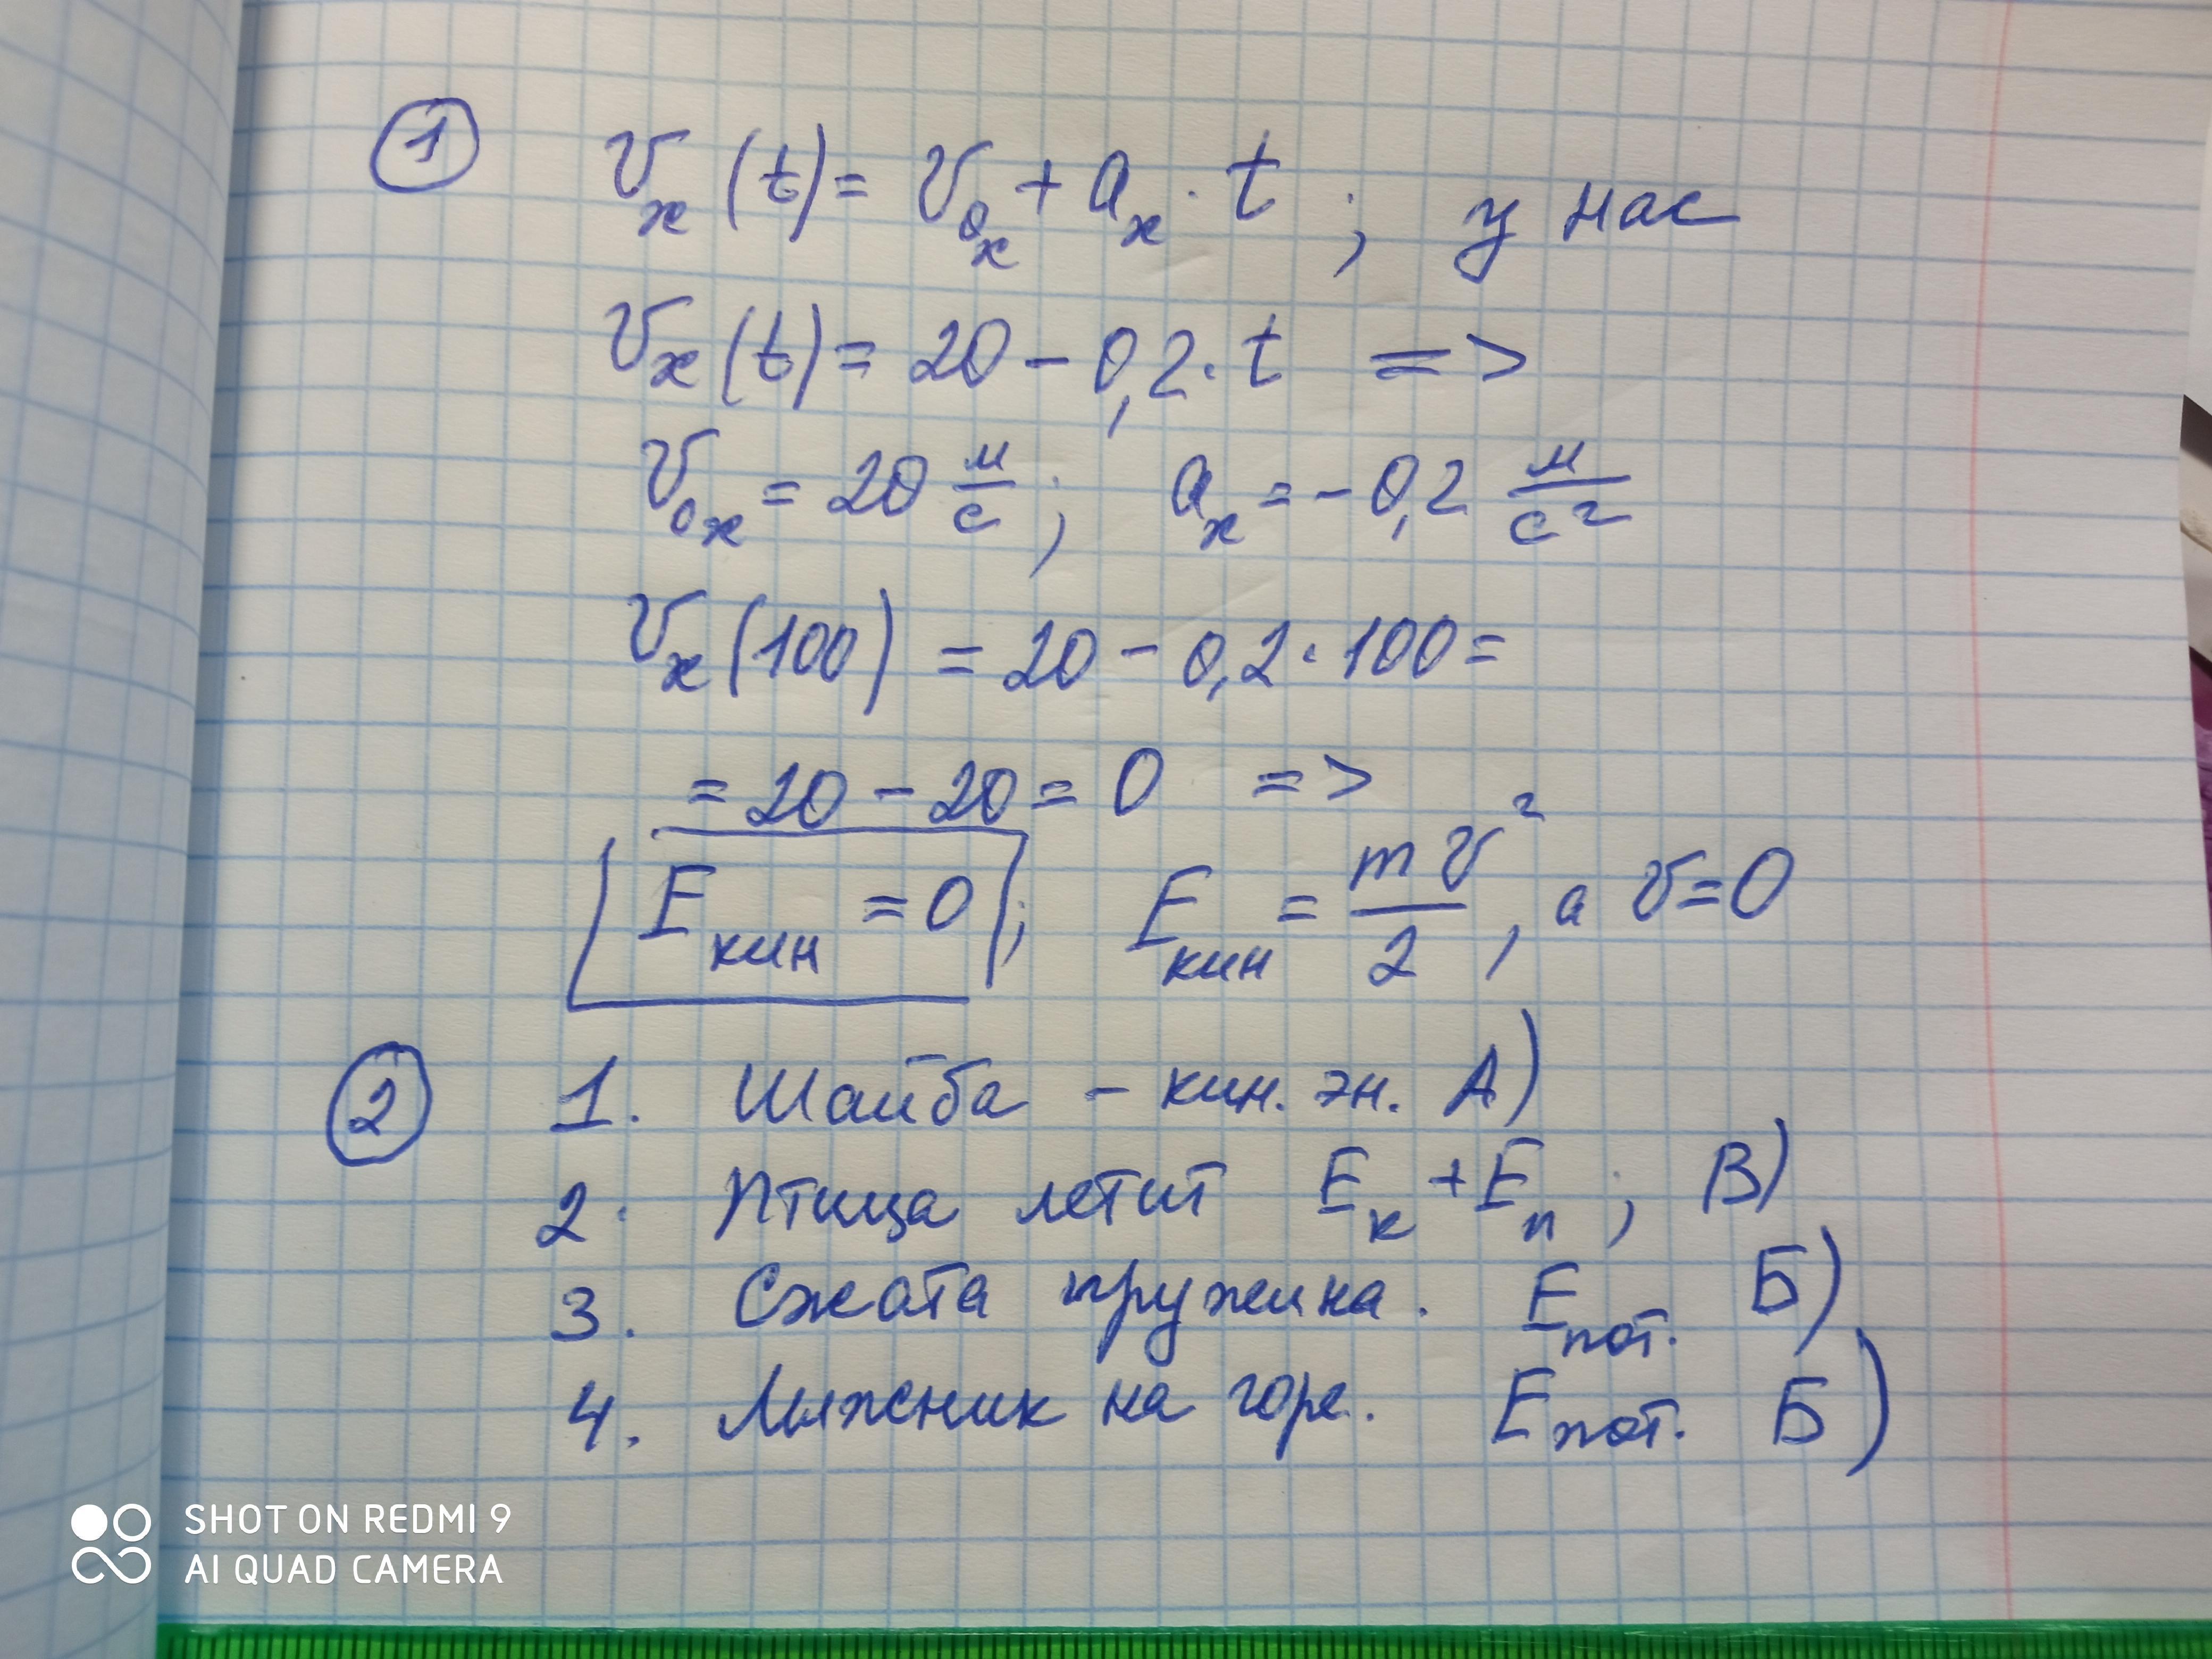 1 Vx(t) = V0x + ax · t ; у нас
Vx(t) = 20 - 0,2 · t =>
V0x = 20 м/с ; ax = -0,2 м/с²
Vx(100) = 20 - 0,2 · 100 =
= 20 - 20 = 0 =>
Eкин = 0 ; Eкин = mv²/2 , а v = 0
2 1. Шайба - кин. эн. А)
2. Птица летит Eк + Eп ; В)
3. Сжата пружина. Eпот. Б)
4. Лыжник на горе. Eпот. Б)
SHOT ON REDMI 9
AI QUAD CAMERA